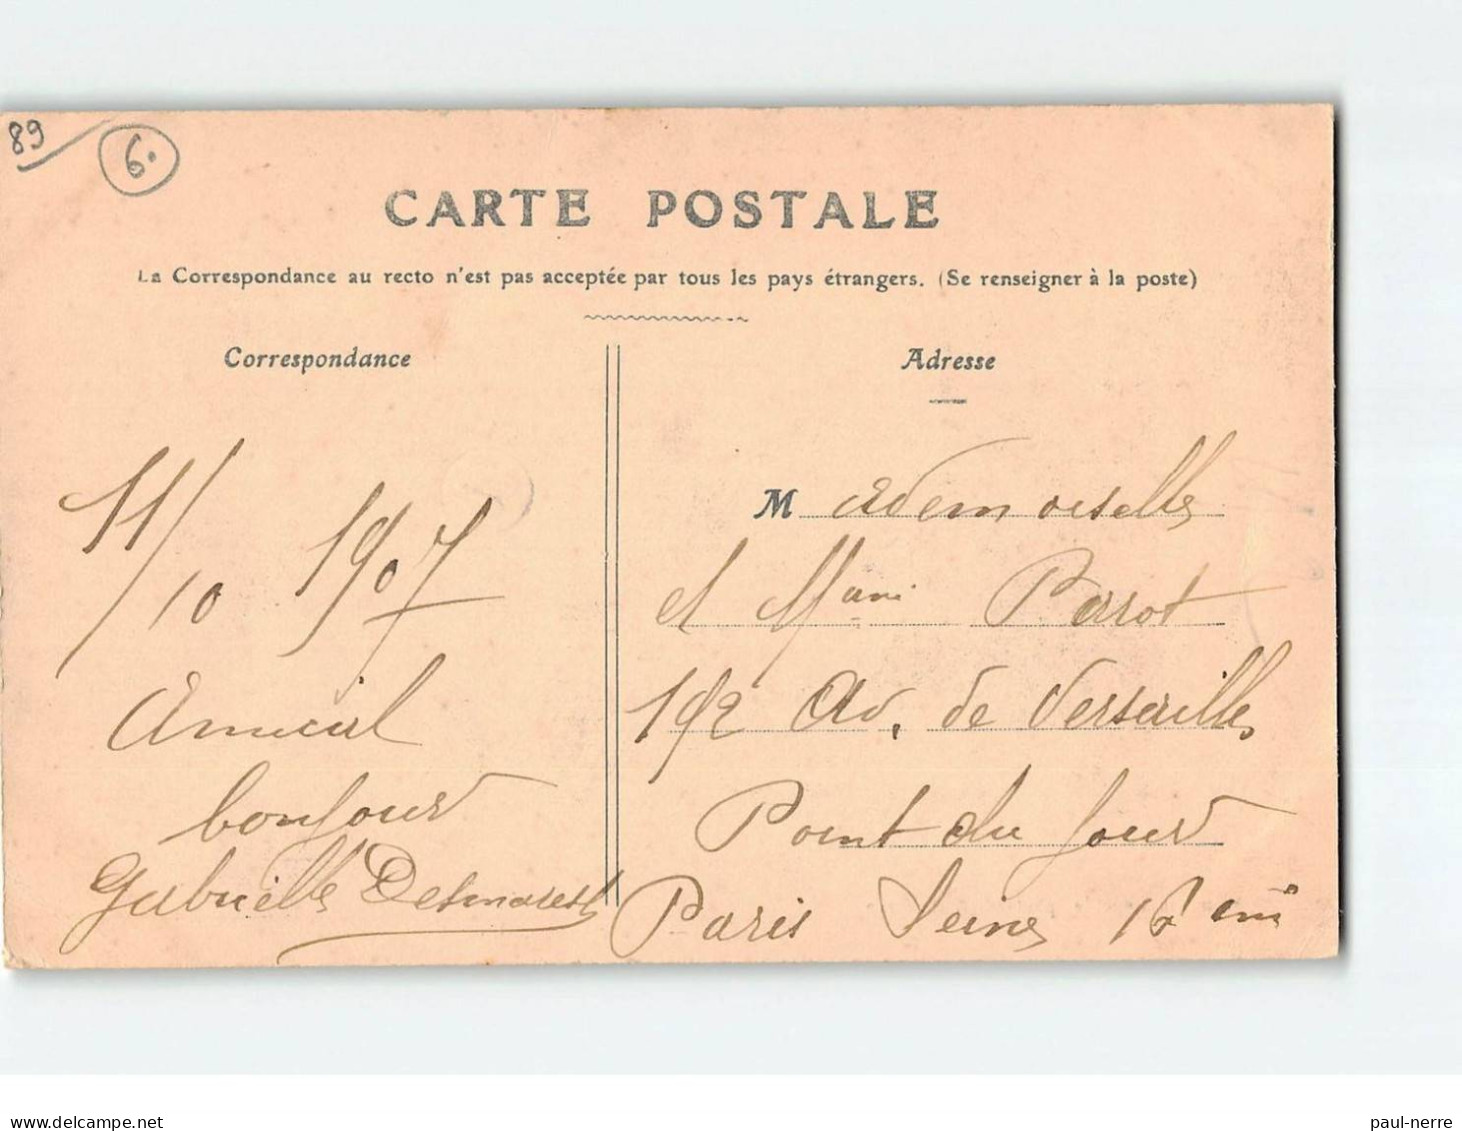 89
6.
CARTE POSTALE
La Correspondance au recto n'est pas acceptée par tous les pays étrangers. (Se renseigner à la poste)
Correspondance
11/10 1907
Amical
bonjour
Gabrielle Desmarest
Adresse
Mademoiselle
et Parot
192 Av. de Versailles
Point du Jour
Paris Seine 16
delcampe.net
paul-nerre